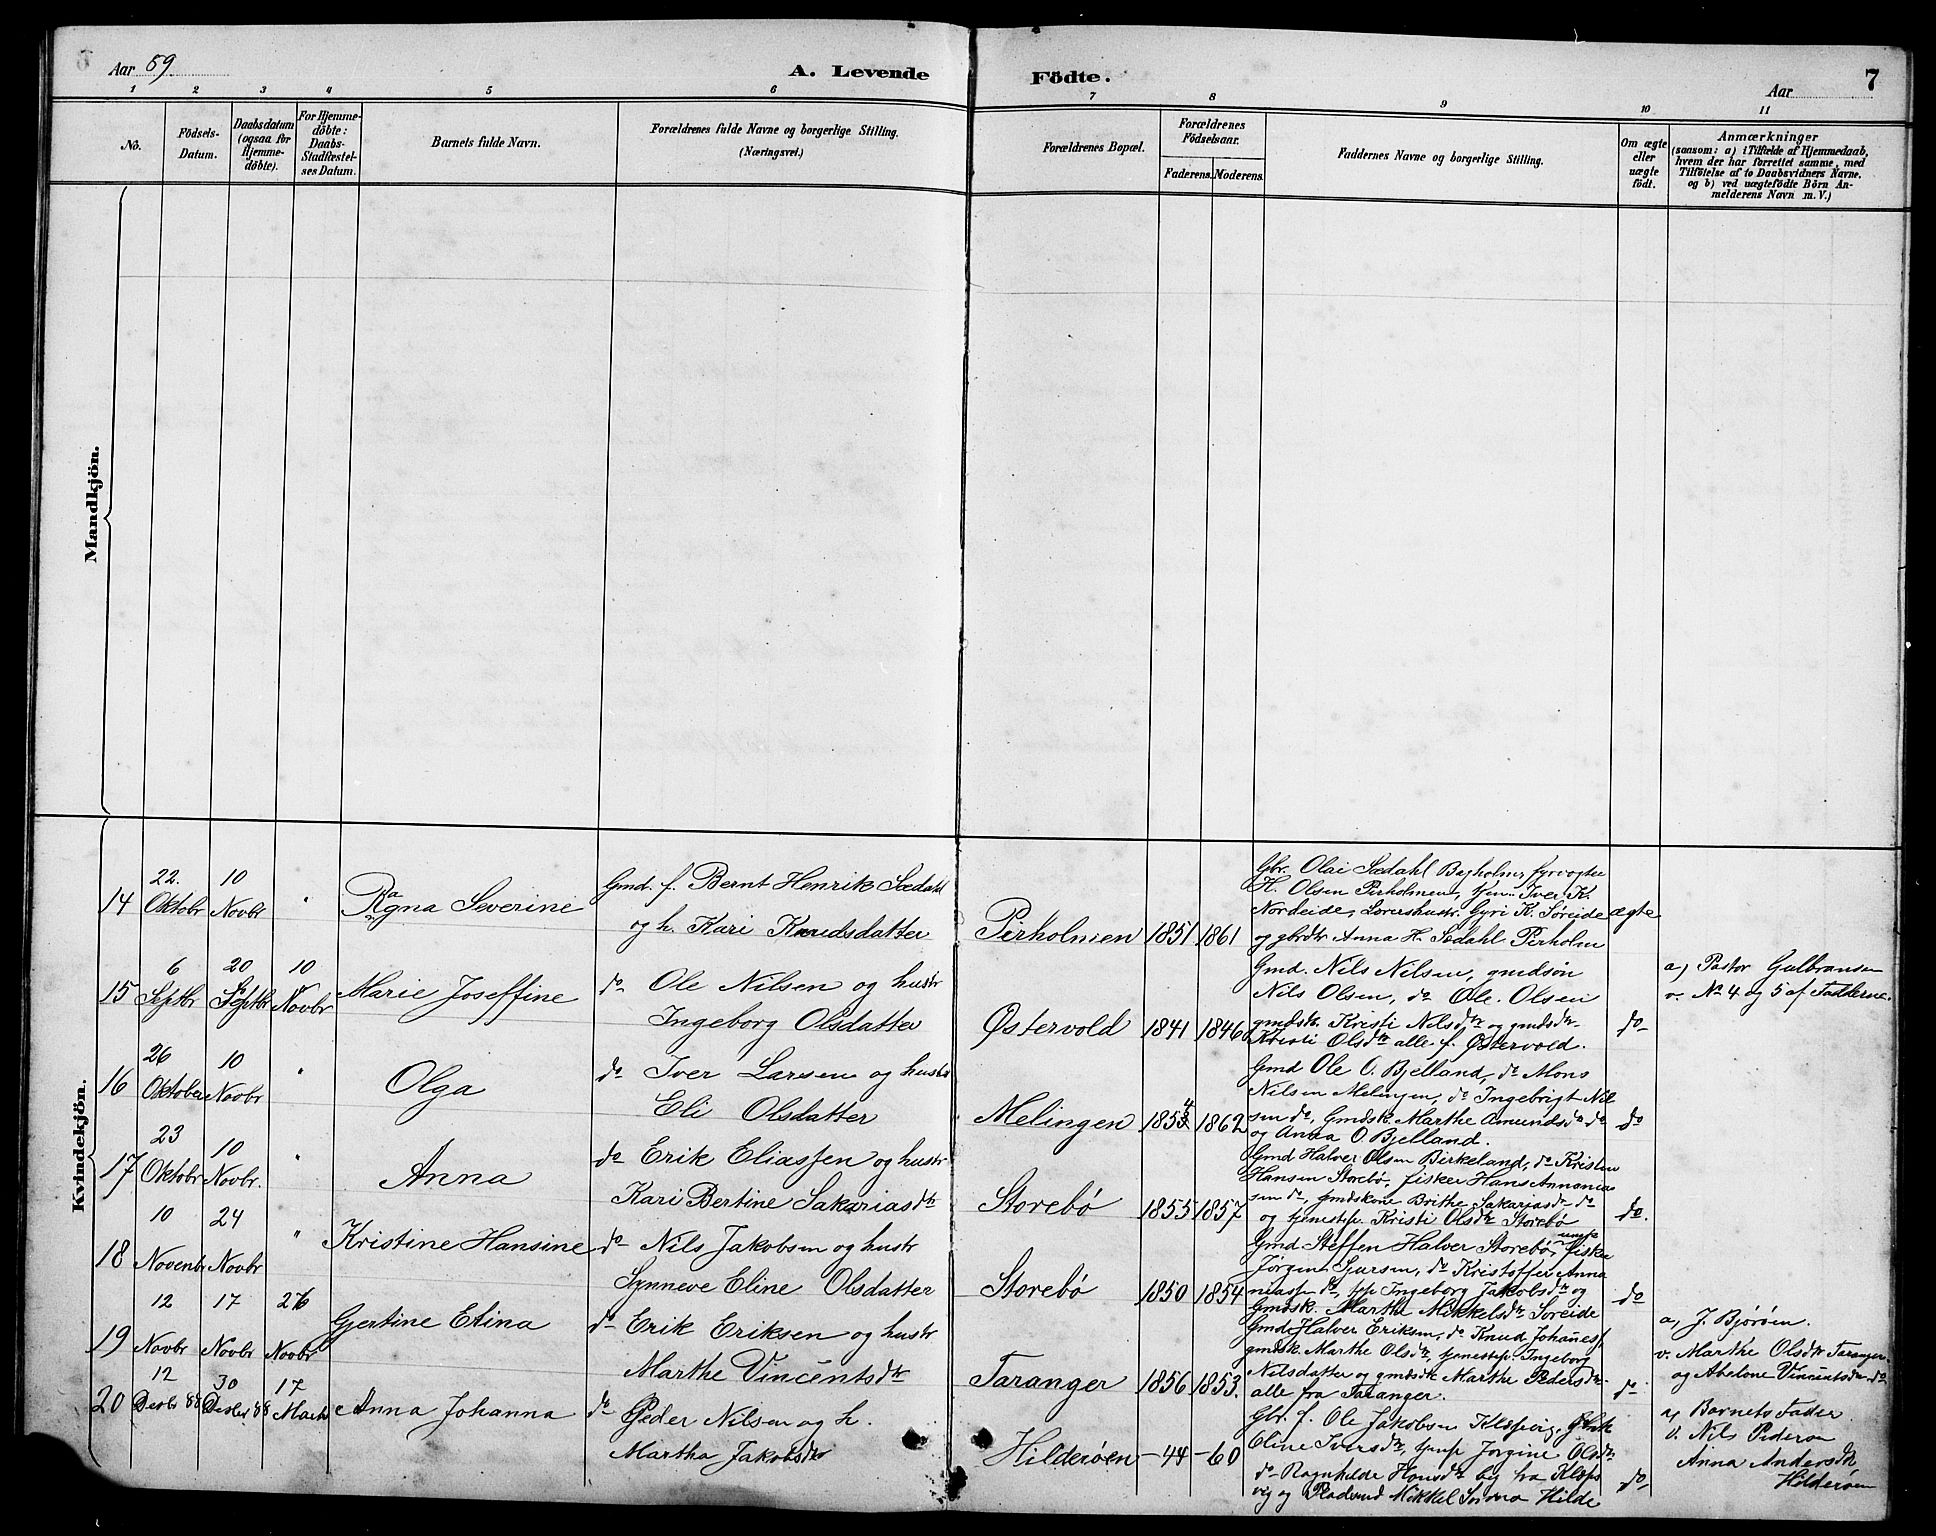 6
Aar 89
A. Levende Födte.
Aar
7
1 2 3 4 5 6 7 8 9 10 11
No.
Födsels-Datum.
Daabsdatum (ogsaa for Hjemme-döbte).
For Hjemme-döbte: Daabs-Stadfæstel-ses Datum.
Barnets fulde Navn.
Forældrenes fulde Navne og borgerlige Stilling.
(Næringsvei.)
Forældrenes Bopæl.
Forældrenes Födselsaar.
Faderens. Moderens.
Faddernes Navne og borgerlige Stilling.
Om ægte eller uægte födt.
Anmærkninger
(saasom: a) i Tilfælde af Hjemmedaab,
hvem der har forrettet samme, med
Tilföielse af to Daabsvidners Navne.
og b) ved uægtefödte Börn An-
melderens Navn m. V.)
Mandkjön.
Kvindekjön.
14
22. Oktobr
10 Novbr
"
Ragna Severine
Gmd. f. Bernt Henrik Sædahl
og h. Kari Knudsdatter
Pirholmen
1851
1861
Gbr. Olai Sædahl Bagholm, fyrvogter
H. Olsen Pirholmen, tjen. Iver K.
Nordeide, Lærershustr. Gyri K. Söreide
og gbrdtr Anna H. Sædahl Pirholm
ægte
15
6 Septbr
20 Septbr
10 Novbr
Marie Joseffine
do Ole Nilsen og hustr
Ingeborg Olsdatter
Østervold
1841
1846
Gmd. Nils Nilsen, gmdsön
Nils Olsen, do Ole Olsen
gmdsk. Kristi Nilsdtr og gmdsdtr
Kristi Olsdtr alle f. Østervold.
do
a) Pastor Gulbransen
v. No 4 og 5 af Fadderne.
16
26 Oktober
10 Novbr
"
Olga
do Iver Larsen og hustr
Eli Olsdatter
Melingen
1854
1862
Gmd Ole O. Bjelland, do Mons
Nilsen Melingen, do Ingebrigt Nil
sen do, Gmdsk. Marthe Amundsdr do
og Anna O. Bjelland.
do
17
23 Oktobr
10 Novbr.
"
Anna
do Erik Eliassen og hustr
Kari Bertine Sakariasdtr
Storebø
1855
1857
Gmd Halver Olsen Birkeland, do Kristen
Hansen Storebø, fisker Hans Annania
sen do, Gmdskone Brithe Sakariasdr do
og tjenestep. Kristi Olsdtr Storebø
do.
18
10 Novenbr
24 Novbr
"
Kristine Hansine
do Nils Jakobsen og hustr
Synneve Eline Olsdatter
Storebø
1850
1854
Gmd Steffen Halver Storebø, fisker
Jørgen Sjursen, do Kristoffer Anna
niassen do, tjp Ingeborg Jakobsdtr og
Gmdsk. Marthe Mikkelsdtr Soreide
do
19
12 Novbr
17 Novbr
26 Novbr
Gjertine Elina
do Erik Eriksen og hustr
Marthe Vincentsdtr
Taranger
1856
1853.
Gmd Halver Eriksen, do Knud Johaness,
gmdsk. Marthe Olsdtr, tjenestep. Ingeborg
Nilsdatter og gmdsdtr Marthe Pedersdtr
alle fra Taranger.
do
a) J. Bjørøen.
v. Marthe Olsdtr Taranger
og Abelone Vincentsdtr do
20
12 Desbr 88
30 Desber 88
17 Marts
Anna Johanna
do Peder Nilsen og h.
Martha Jakobsdtr
Hilderøen
-44
-60
Gbr. f. Ole Jakobsen Klæpvig, Gbrk
Oline Iversdtr, tjenp Jorgine Olsdtr
do Ragnhilde Hansdtr beg fra Klæp
vig og Mikkel Hilde
do
a) Barnets Fader
v. Nils Pederson
Anna Andersdtr
Hilderøen